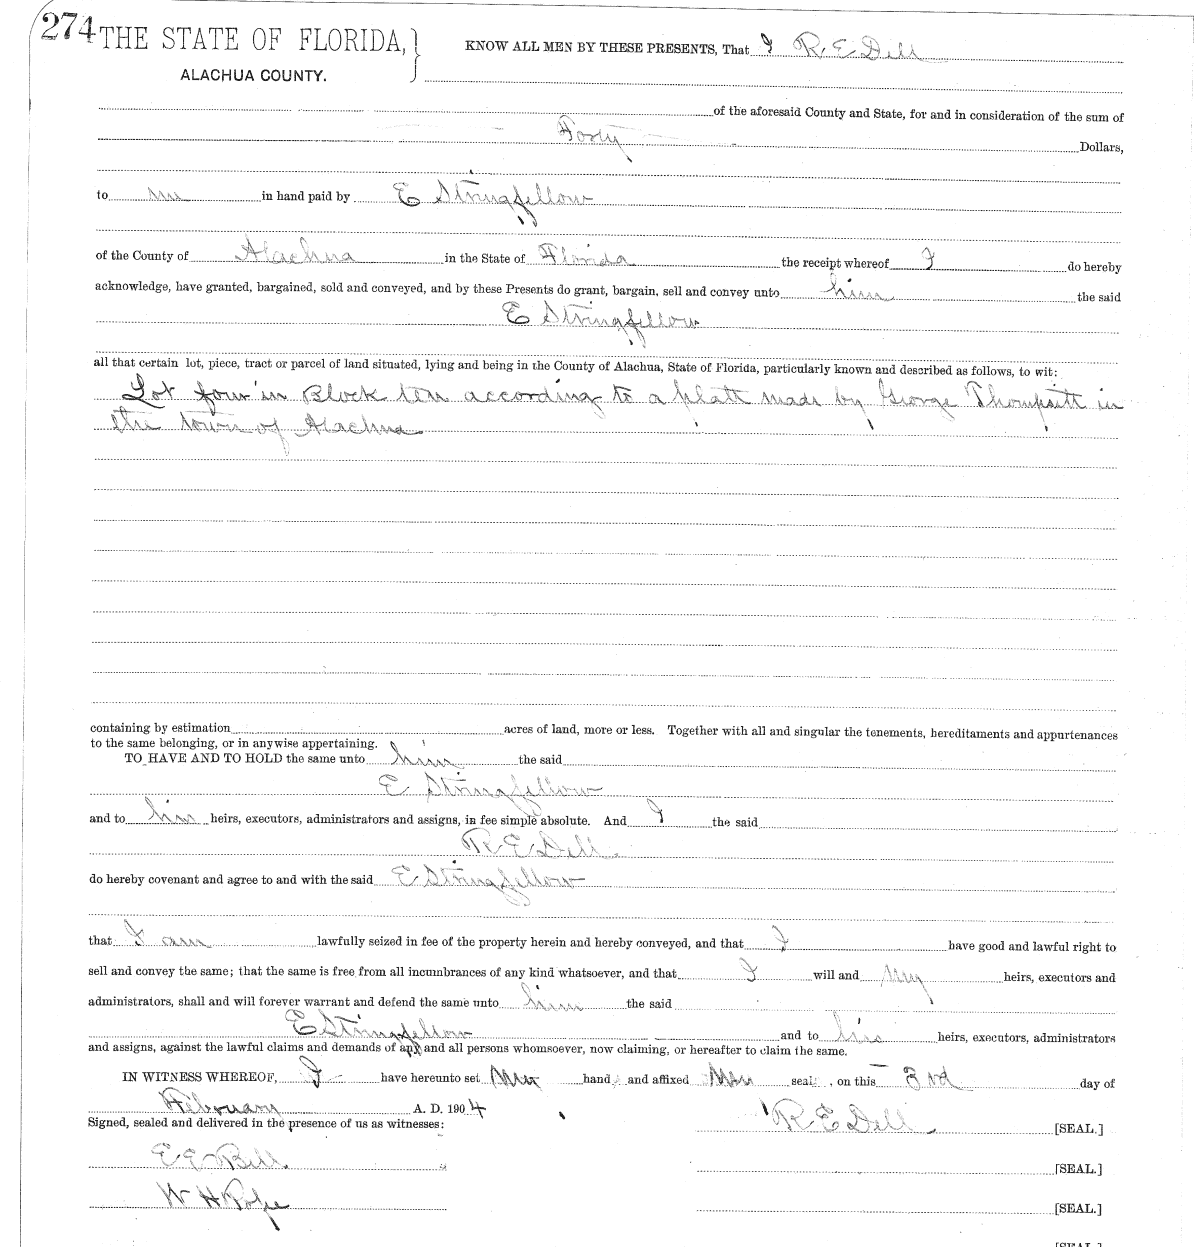 274
THE STATE OF FLORIDA,
ALACHUA COUNTY.
KNOW ALL MEN BY THESE PRESENTS, That I R. E Dell
of the aforesaid County and State, for and in consideration of the sum of
Forty Dollars,
to me in hand paid by E Stringfellow
of the County of Alachua in the State of Florida the receipt whereof I do hereby
acknowledge, have granted, bargained, sold and conveyed, and by these Presents do grant, bargain, sell and convey unto him the said
E Stringfellow
all that certain lot, piece, tract or parcel of land situated, lying and being in the County of Alachua, State of Florida, particularly known and described as follows, to wit:
Lot four in Block ten according to a platt made by George Thompsitt in
the town of Alachua
containing by estimation acres of land, more or less. Together with all and singular the tenements, hereditaments and appurtenances
to the same belonging, or in anywise appertaining.
TO HAVE AND TO HOLD the same unto him the said
E Stringfellow
and to his heirs, executors, administrators and assigns, in fee simple absolute. And I the said
R. E Dell
do hereby covenant and agree to and with the said E Stringfellow
that I am lawfully seized in fee of the property herein and hereby conveyed, and that I have good and lawful right to
sell and convey the same; that the same is free from all incumbrances of any kind whatsoever, and that I will and my heirs, executors and
administrators, shall and will forever warrant and defend the same unto him the said
E Stringfellow and to his heirs, executors, administrators
and assigns, against the lawful claims and demands of any and all persons whomsoever, now claiming, or hereafter to claim the same.
IN WITNESS WHEREOF, I have hereunto set my hand and affixed my seal, on this 3rd day of
February A. D. 1904
Signed, sealed and delivered in the presence of us as witnesses:
R E Dell [SEAL.]
E E Bell [SEAL.]
W H Pope [SEAL.]